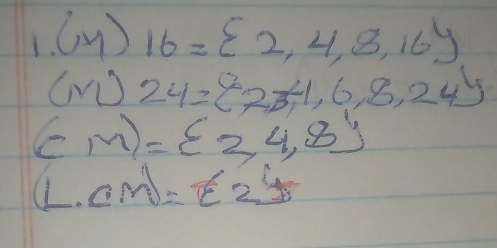 1. (M) 16 = {2, 4, 8, 16}
(M) 24 = {2, 3, 4, 6, 8, 24}
(C M) = {2, 4, 8}
(L.CM) = {2}